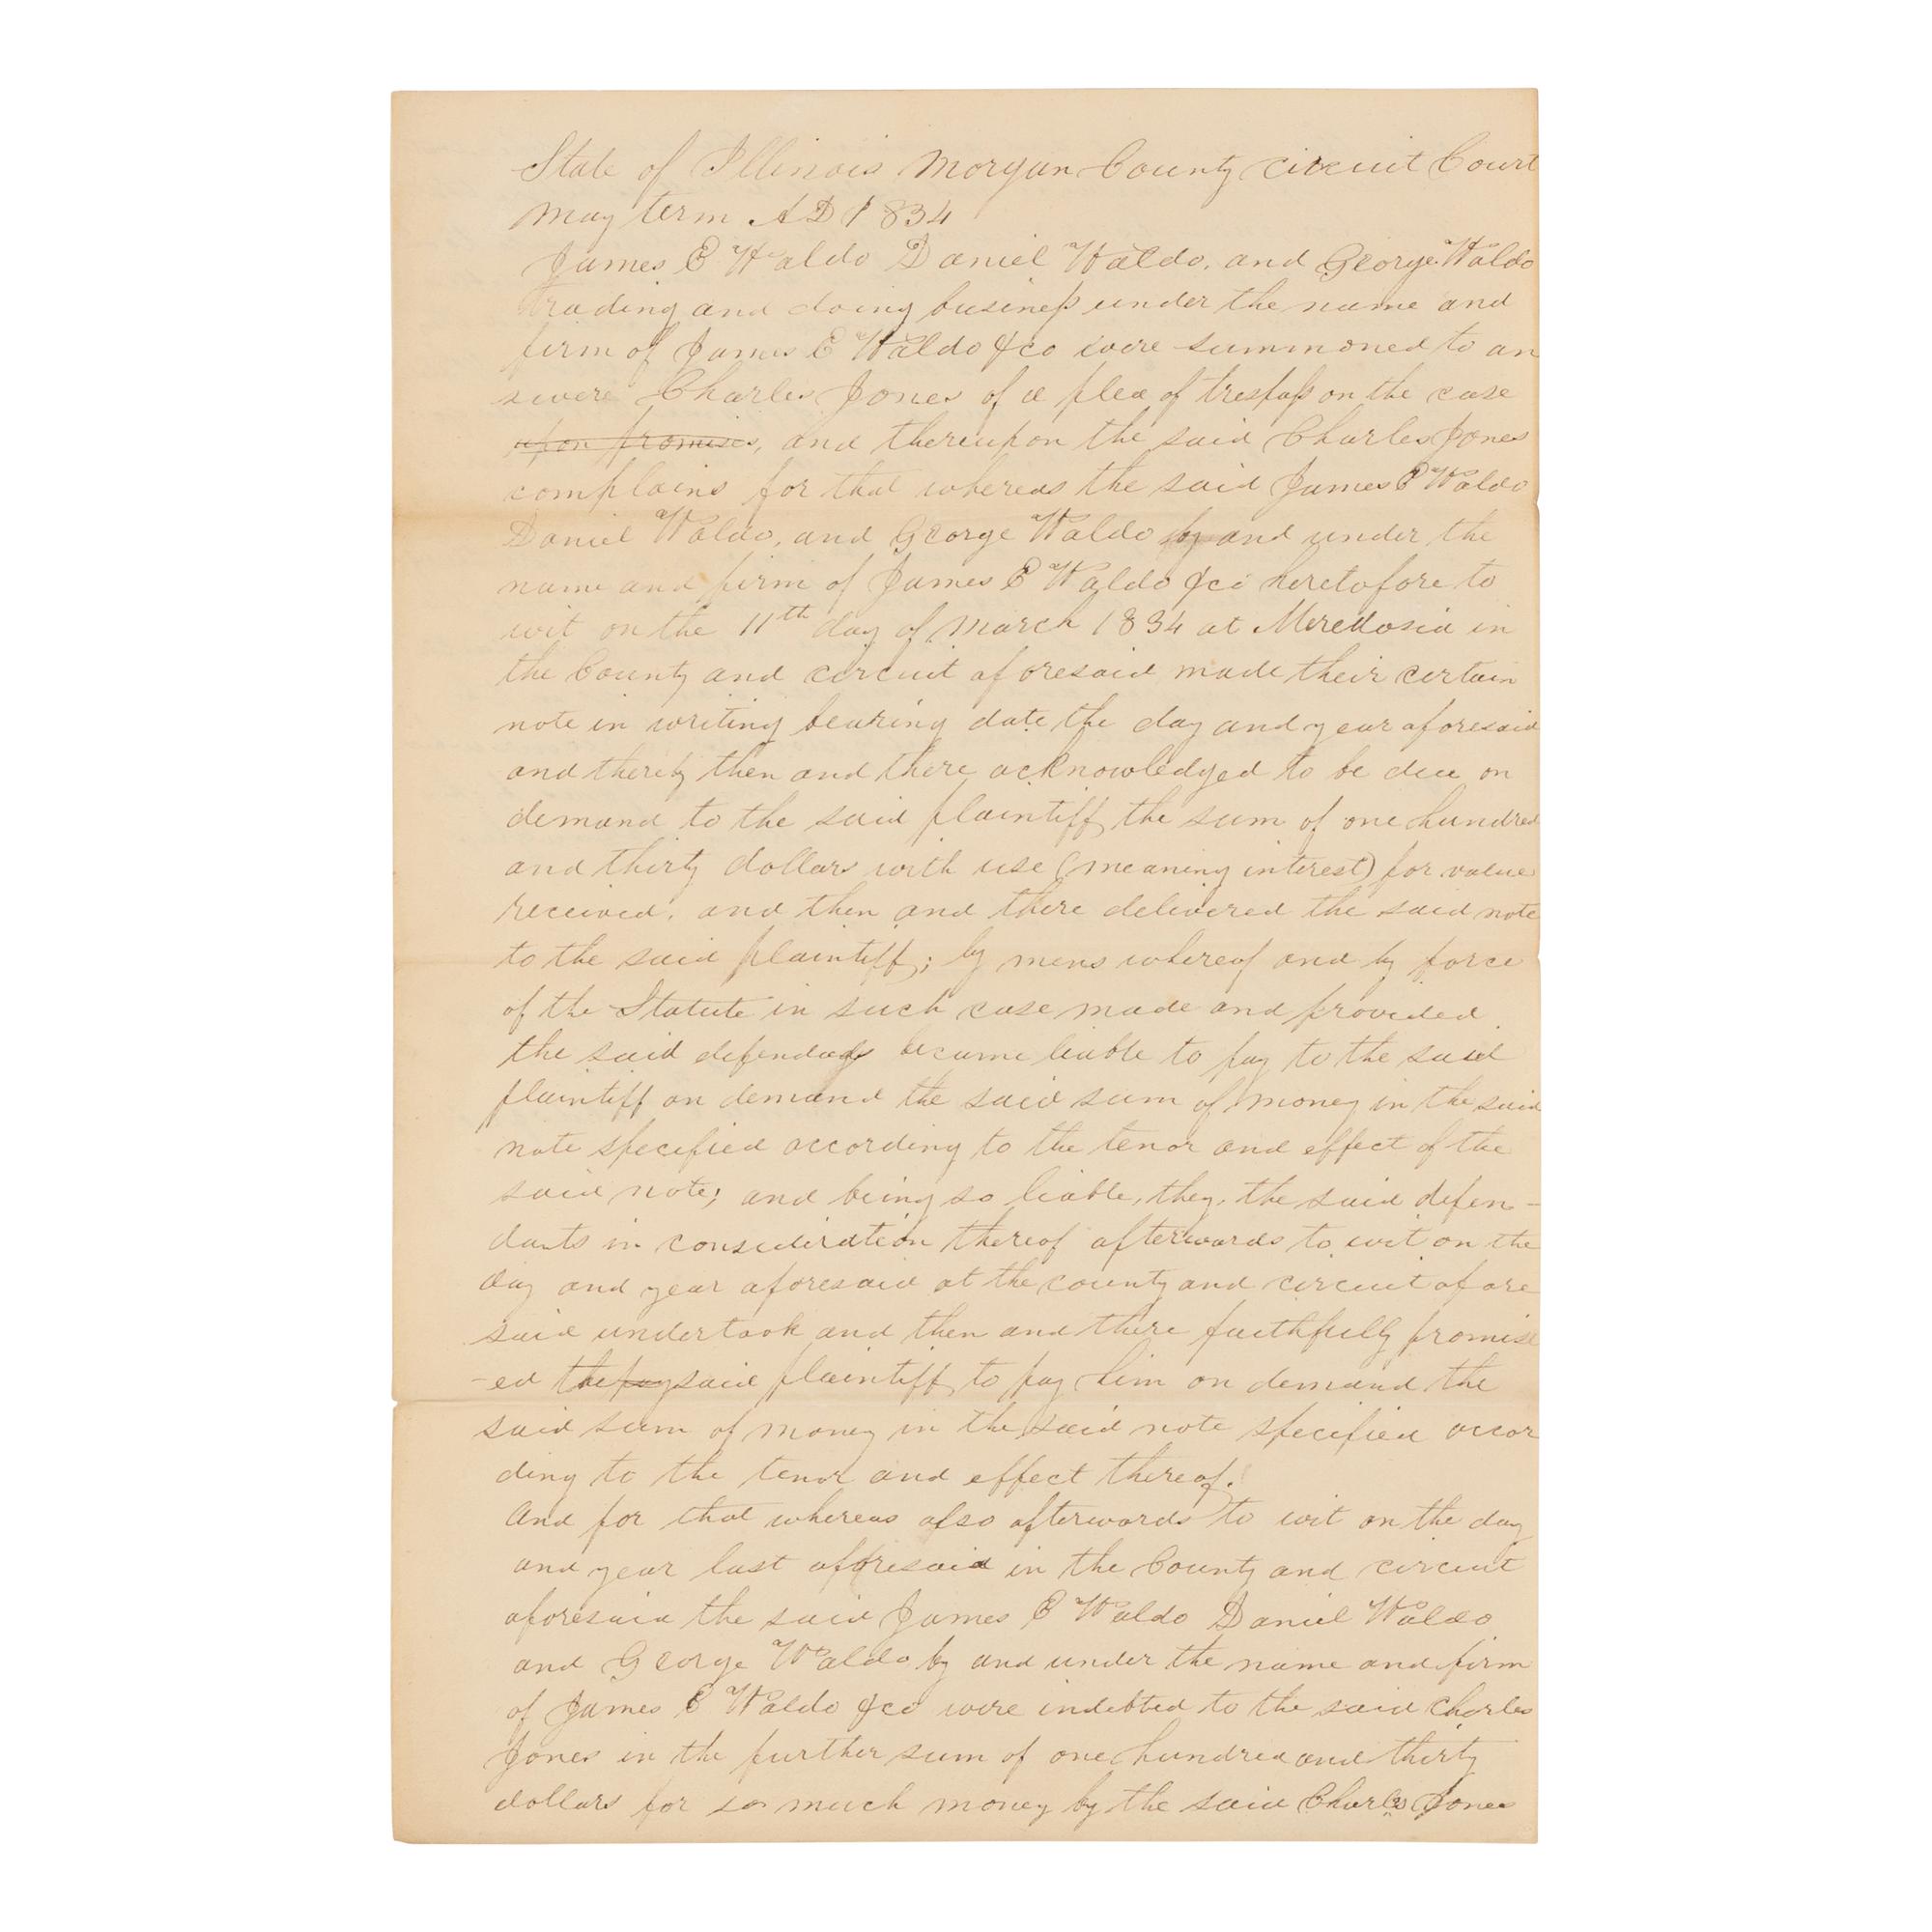 State of Illinois Morgan County circuit Court
May term AD 1834
James E Waldo Daniel Waldo, and George Waldo
trading and doing business under the name and
firm of James E Waldo &co were summoned to an
swere Charles Jones of a plea of trespass on the case
upon promises, and thereupon the said Charles Jones
complains for that whereas the said James E Waldo
Daniel Waldo, and George Waldo by and under the
name and firm of James E Waldo &co heretofore to
wit on the 11th day of March 1834 at Meredosia in
the County and circuit aforesaid made their certain
note in writing bearing date the day and year aforesaid
and thereby then and there acknowledged to be due on
demand to the said plaintiff the sum of one hundred
and thirty dollars with use (meaning interest) for value
received, and then and there delivered the said note
to the said plaintiff; by mens whereof and by force
of the Statute in such case made and provided
the said defendads became liable to pay to the said
plaintiff on demand the said sum of money in the said
note specified according to the tenor and effect of the
said note; and being so liable, they, the said defen-
dants in consideration thereof afterwards to wit on the
day and year aforesaid at the county and circuit afore
said undertook and then and there faithfully promis
-ed the pay said plaintiff to pay him on demand the
said sum of money in the said note specified accor
ding to the tenor and effect thereof.
And for that whereas also afterwards to wit on the day
and year last afforesaid in the County and circuit
aforesaid the said James E Waldo Daniel Waldo
and George Waldo by and under the name and firm
of James E Waldo &co were indebted to the said Charles
Jones in the further sum of one hundred and thirty
dollars for so much money by the said Charles Jones